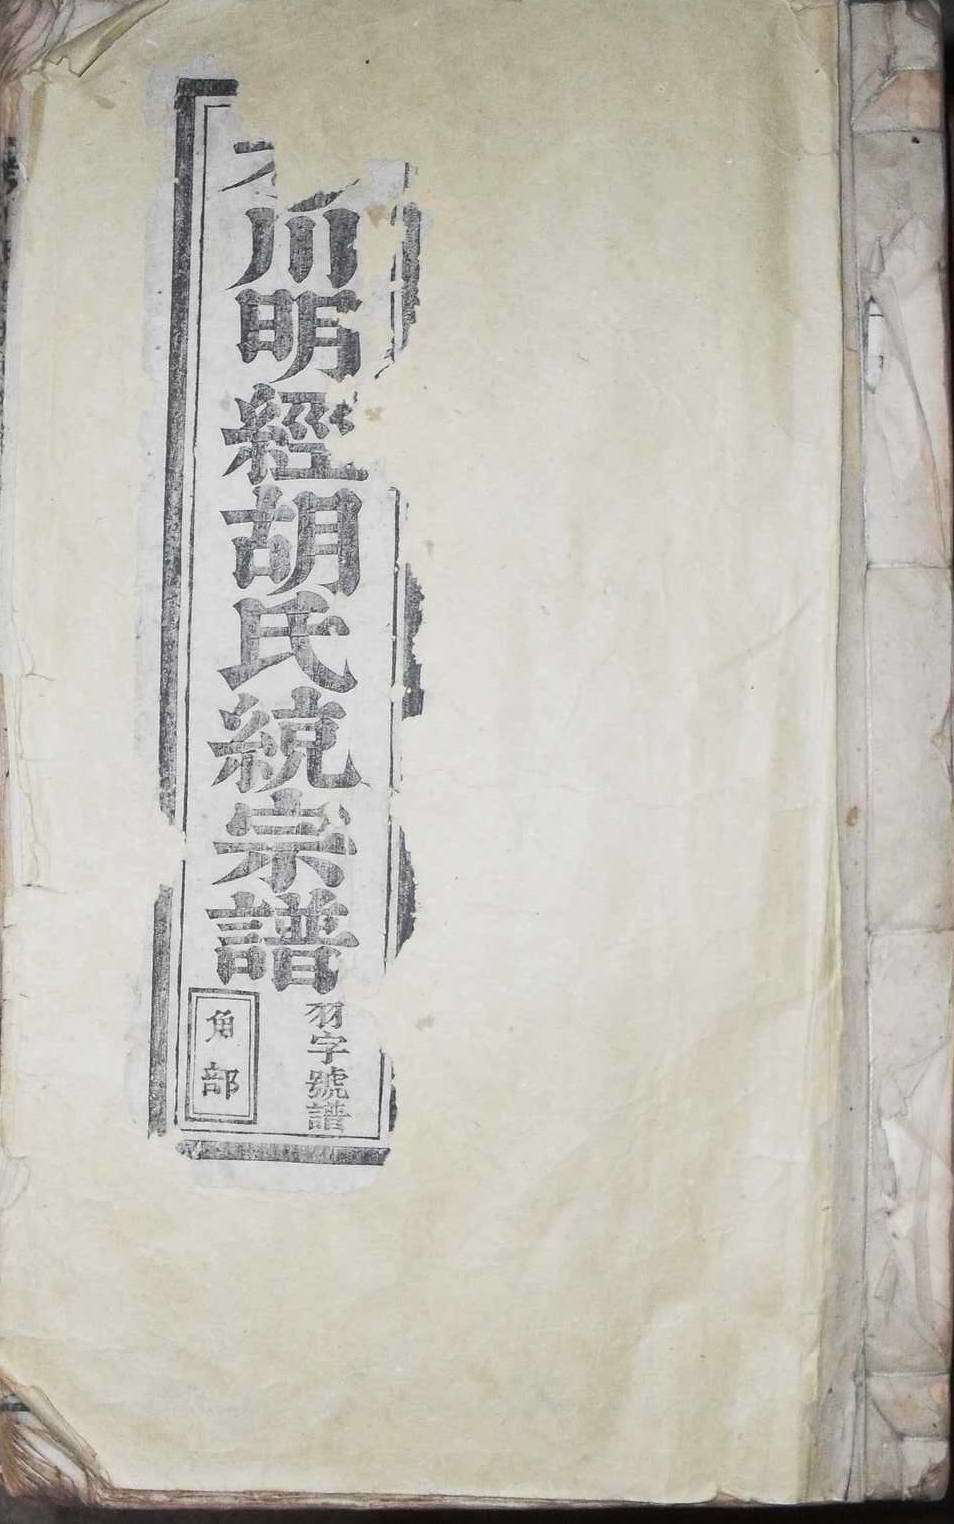 川明經胡氏統宗譜
羽字號譜
角部